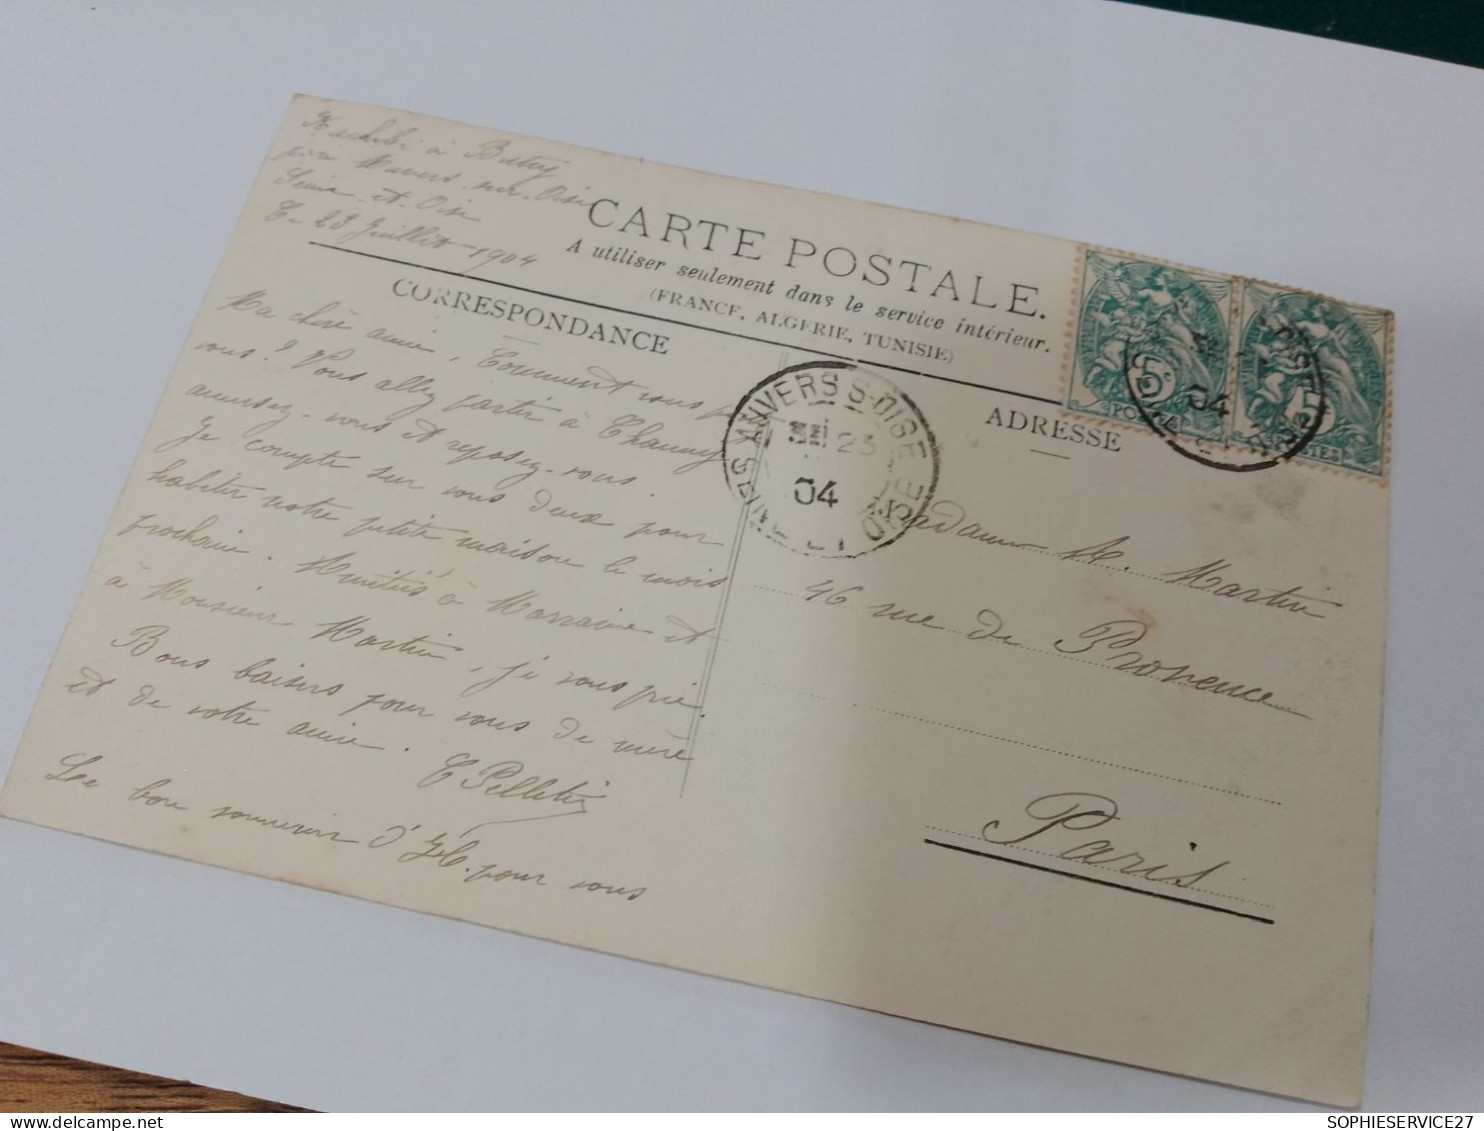 à Butry
par Auvers-sur-Oise
Seine-et-Oise
Ce 23 Juillet 1904
CARTE POSTALE.
A utiliser seulement dans le service intérieur.
(FRANCE, ALGERIE, TUNISIE)
CORRESPONDANCE
Ma chère amie, Comment
vous? Vous allez partir à Chauny
amusez-vous et reposez-vous.
Je compte sur vous deux pour
habiter notre petite maison le mois
prochain. Amitiés à Marraine et
à Monsieur Martin, je vous prie.
Bons baisers pour vous de mère
et de votre amie.
C Pelletier
Le bon souvenir d'H. pour vous
AUVERS S-OISE
23
04
SEINE ET OISE
5c
POSTES
04
POSTES
ADRESSE
Madame A. Martin
46 rue de Provence
Paris
SOPHIESERVICE27